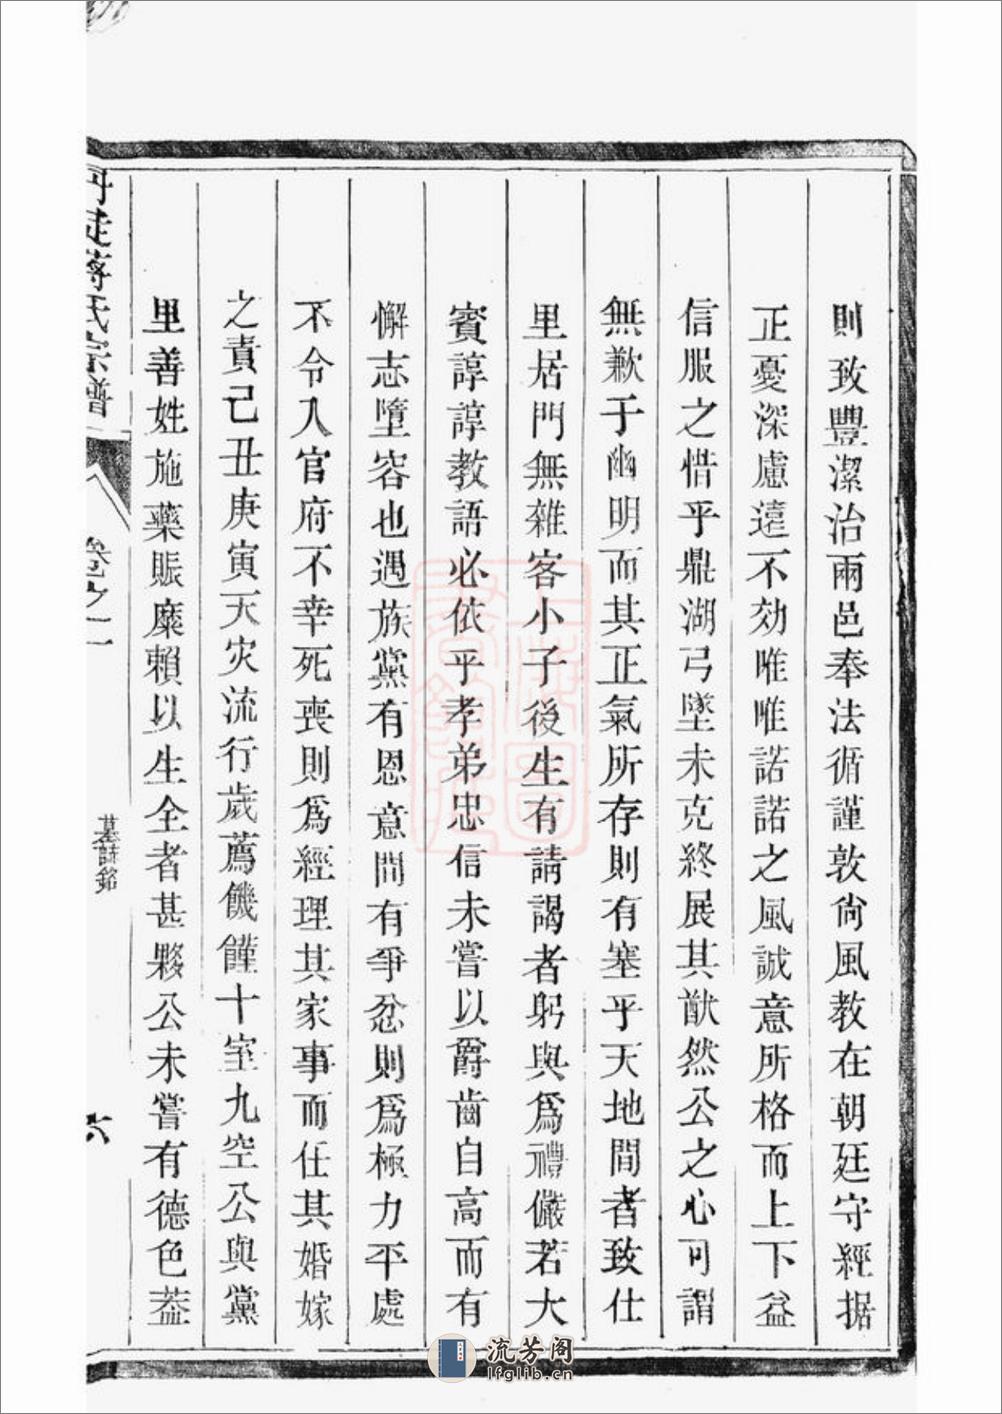 則致豐潔治兩邑奉法循謹敦尙風教在朝廷守經据
正憂深慮遠不効唯唯諾諾之風誠意所格而上下益
信服之惜乎鼎湖弓墜未克終展其猷然公之心可謂
無歉于幽明而其正氣所存則有塞乎天地間者致仕
里居門無雜客小子後生有請謁者躬與爲禮儼若大
賓諄諄教語必依乎孝弟忠信未嘗以爵齒自高而有
懈志墮容也遇族黨有恩意間有爭忿則爲極力平處
不令入官府不幸死喪則爲經理其家事而任其婚嫁
之責己丑庚寅天灾流行歲薦饑饉十室九空公與黨
里善姓施藥賑糜賴以生全者甚夥公未嘗有德色葢
丹徒蔣氏宗譜
卷之二
墓誌銘
六
流芳阁
lfglib.cn